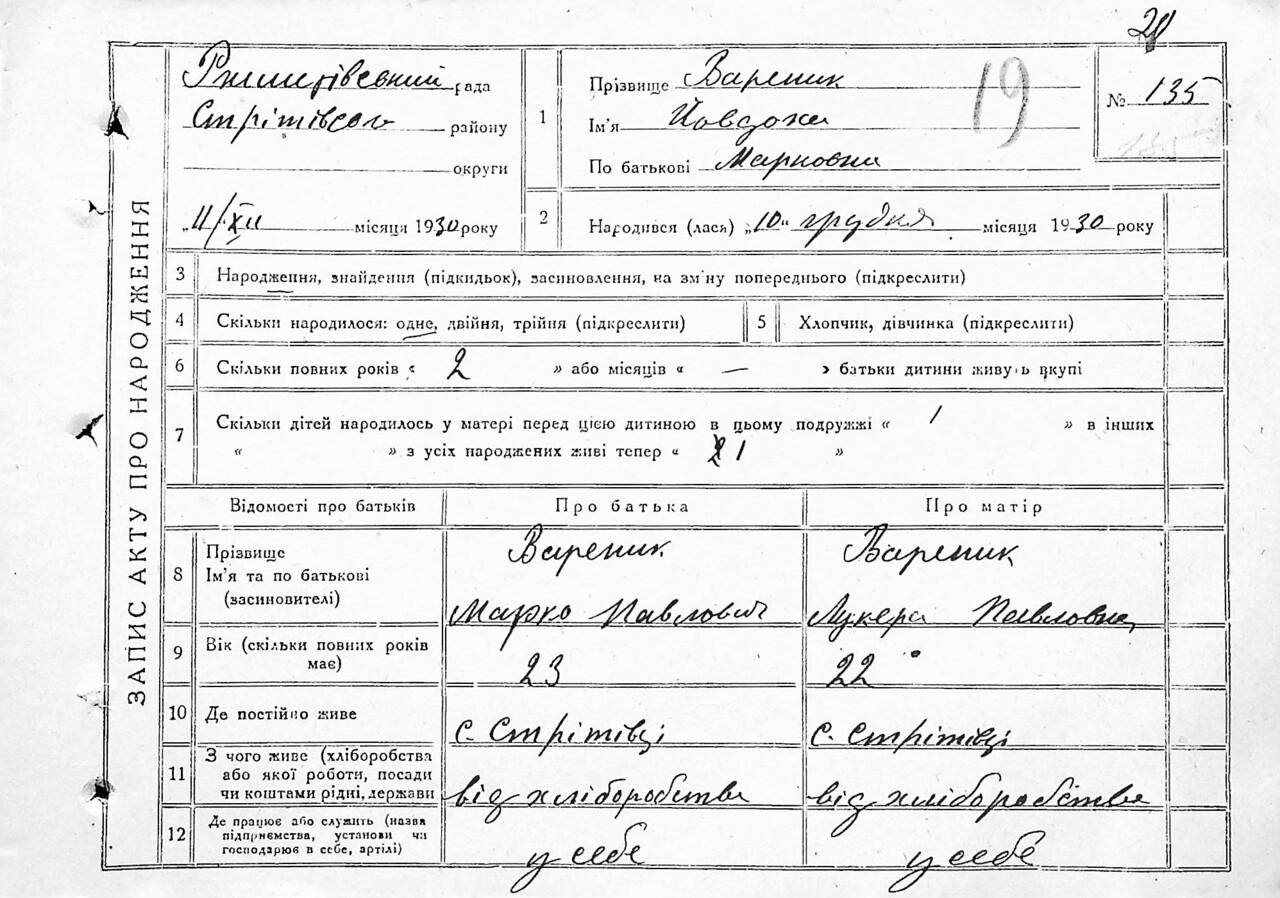 20
ЗАПИС АКТУ ПРО НАРОДЖЕННЯ
Ржищівський рада
Стрітівсого району
округи
„11/XII місяця 1930 року
1
Прізвище Вареник
Ім'я Йовдоха
По батькові Марковна
19
№ 135
135
2
Народився (лася) „10“ грудня місяця 1930 року
3 Народження, знайдення (підкидьок), засиновлення, на зм'ну попереднього (підкреслити)
4 Скільки народилося: одне, двійня, трійня (підкреслити)
5 Хлопчик, дівчинка (підкреслити)
6 Скільки повних років « 2 » або місяців « — » батьки дитини живуть вкупі
7 Скільки дітей народилось у матері перед цією дитиною в цьому подружжі « 1 » в інших
« » з усіх народжених живі тепер « 1 »
Відомості про батьків Про батька Про матір
8 Прізвище Вареник Вареник
Ім'я та по батькові
(засиновителі) Марко Павлович Лукера Павловна
9 Вік (скільки повних років
має) 23 22
10 Де постійно живе с. Стрітівці с. Стрітівці
11 З чого живе (хліборобства
або якої роботи, посади
чи коштами рідні, держави від хліборобства від хліборобства
12 Де працює або служить (назва
підприємства, установи чи
господарює в себе, артілі) у себе у себе